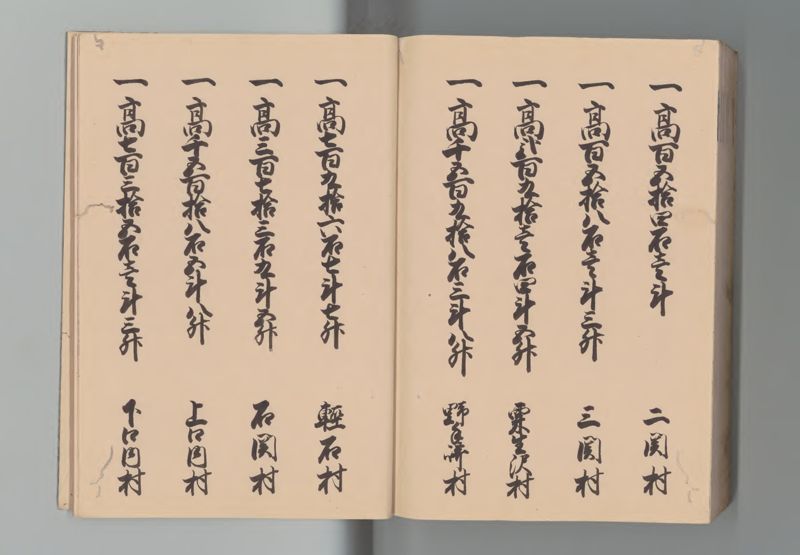 一高百五拾四石壱斗 二関村
一高百五拾八石壱斗三升 三関村
一高弐百九拾壱石四斗五升 粟生沢村
一高千五百九拾八石三斗八升 村
一高七百九拾六石七斗七升 軽石村
一高三百七拾三石九斗五升 石関村
一高千五百拾八石五斗八升 上口内村
一高七百三拾五石壱斗三升 下口内村